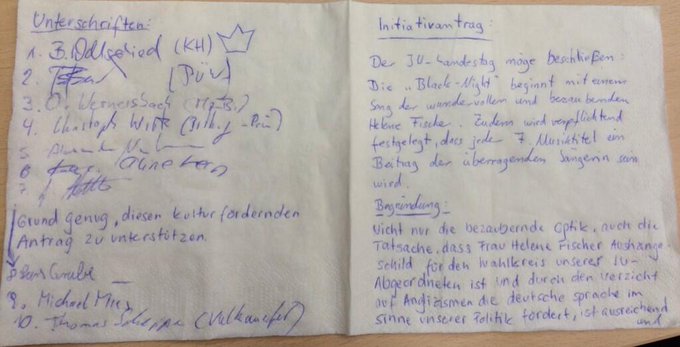 Unterschriften:
1. B. (KH)
2. (PÜW)
3. O. Wernersbach
4. Christoph
5.
6.
7.
Grund genug, diesen kulturfördernden
Antrag zu unterstützen.
8
9. Michael
10. Thomas (Vulkaneifel)
Initiativantrag:
Der JU-Landestag möge beschließen:
Die „Black-Night" beginnt mit einem
Song der wundervollen und bezaubernden
Helene Fischer. Zudem wird verpflichtend
festgelegt, dass jeder 7. Musiktitel ein
Beitrag der überragenden Sängerin sein
wird.
Begründung:
Nicht nur die bezaubernde Optik, auch die
Tatsache, dass Frau Helene Fischer Aushänge-
schild für den Wahlkreis unserer JU-
Abgeordneten ist und durch den Verzicht
auf Anglizismen die deutsche Sprache im
Sinne unserer Politik fördert, ist ausreichend
und